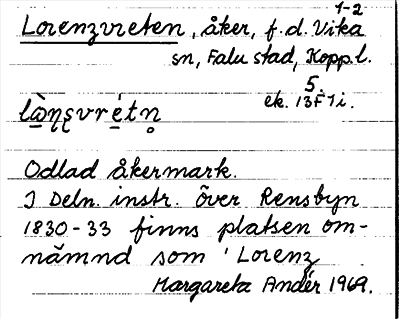 1-2
Lorenzvreten, åker, f.d. Vika
sn, Falu stad, Kopp.l.
5.
ek. 13F 1i.
lòṇșvrétn̥
Odlad åkermark.
I Deln. instr. över Rensbyn
1830-33 finns platsen om-
nämnd som 'Lorenz
Margareta Andér 1969.